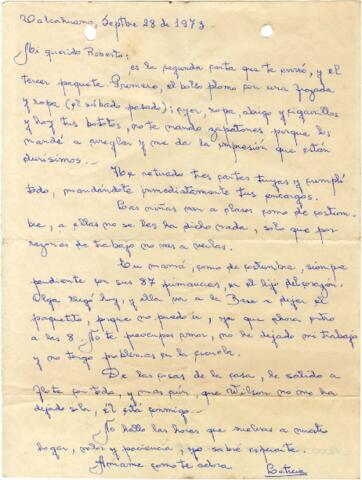 Talcahuano, Septbre 28 de 1973.-
Mi querido Roberto:
es la segunda carta que te envío, y el
tercer paquete. Primero, el bolso plomo con una frazada
y ropa (el sábado pasado); ayer, ropa, abrigo y cigarrillos
y hoy tus botitos, no te mando zapatones porque los
mandé a arreglar y me da la impresión que están
durísimos...-
He retirado tres cartas tuyas y cumplí
todo, mandándote inmediatamente tus encargos.
Las niñas van a clases como de costum-
bre, a ellas no se les ha dicho nada, sólo que por
razones de trabajo no vas a verlas.
Tu mamá, como de costumbre, siempre
pendiente por sus 87 primaveras, es el hijo del corazón.
Olga llegó hoy, y ella va a la Base a dejar el
paquetito, porque no puedo ir, ya que ahora entro
a las 8. No te preocupes amor, no he dejado mi trabajo
y no tengo problemas en la escuela.
De las cosas de la casa, he salido a
flote con todo, y más aún, que Wilson no me ha
dejado sola, él está conmigo...-
No hallo las horas que vuelvas a nuestro
hogar, valor y paciencia, yo sabré esperarte.
Amame como te adora.
Leticia